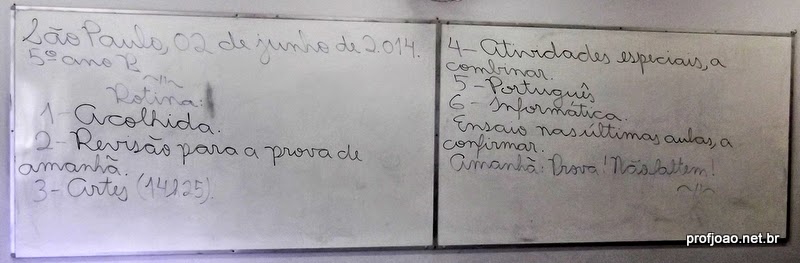 São Paulo, 02 de junho de 2.014.
5º ano B
Rotina:
1- Acolhida.
2- Revisão para a prova de
amanhã.
3- Artes (14h25).
4- Atividades especiais, a
combinar.
5- Português
6- Informática.
Ensaio nas últimas aulas, a
confirmar.
Amanhã: Prova! Não faltem!
profjoao.net.br